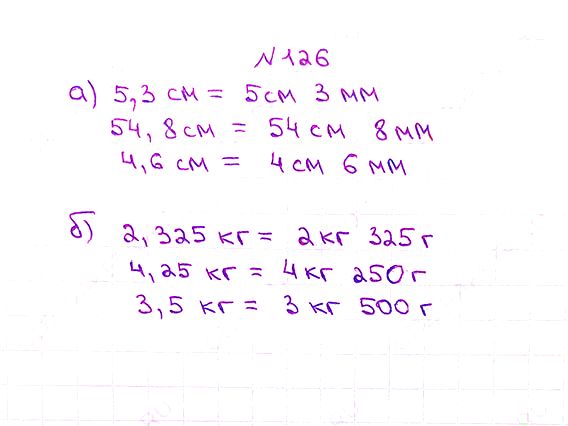 N126
а) 5,3 см = 5см 3 мм
54,8см = 54 см 8 мм
4,6 см = 4 см 6 мм
б) 2,325 кг = 2кг 325г
4,25 кг = 4кг 250г
3,5 кг = 3 кг 500 г